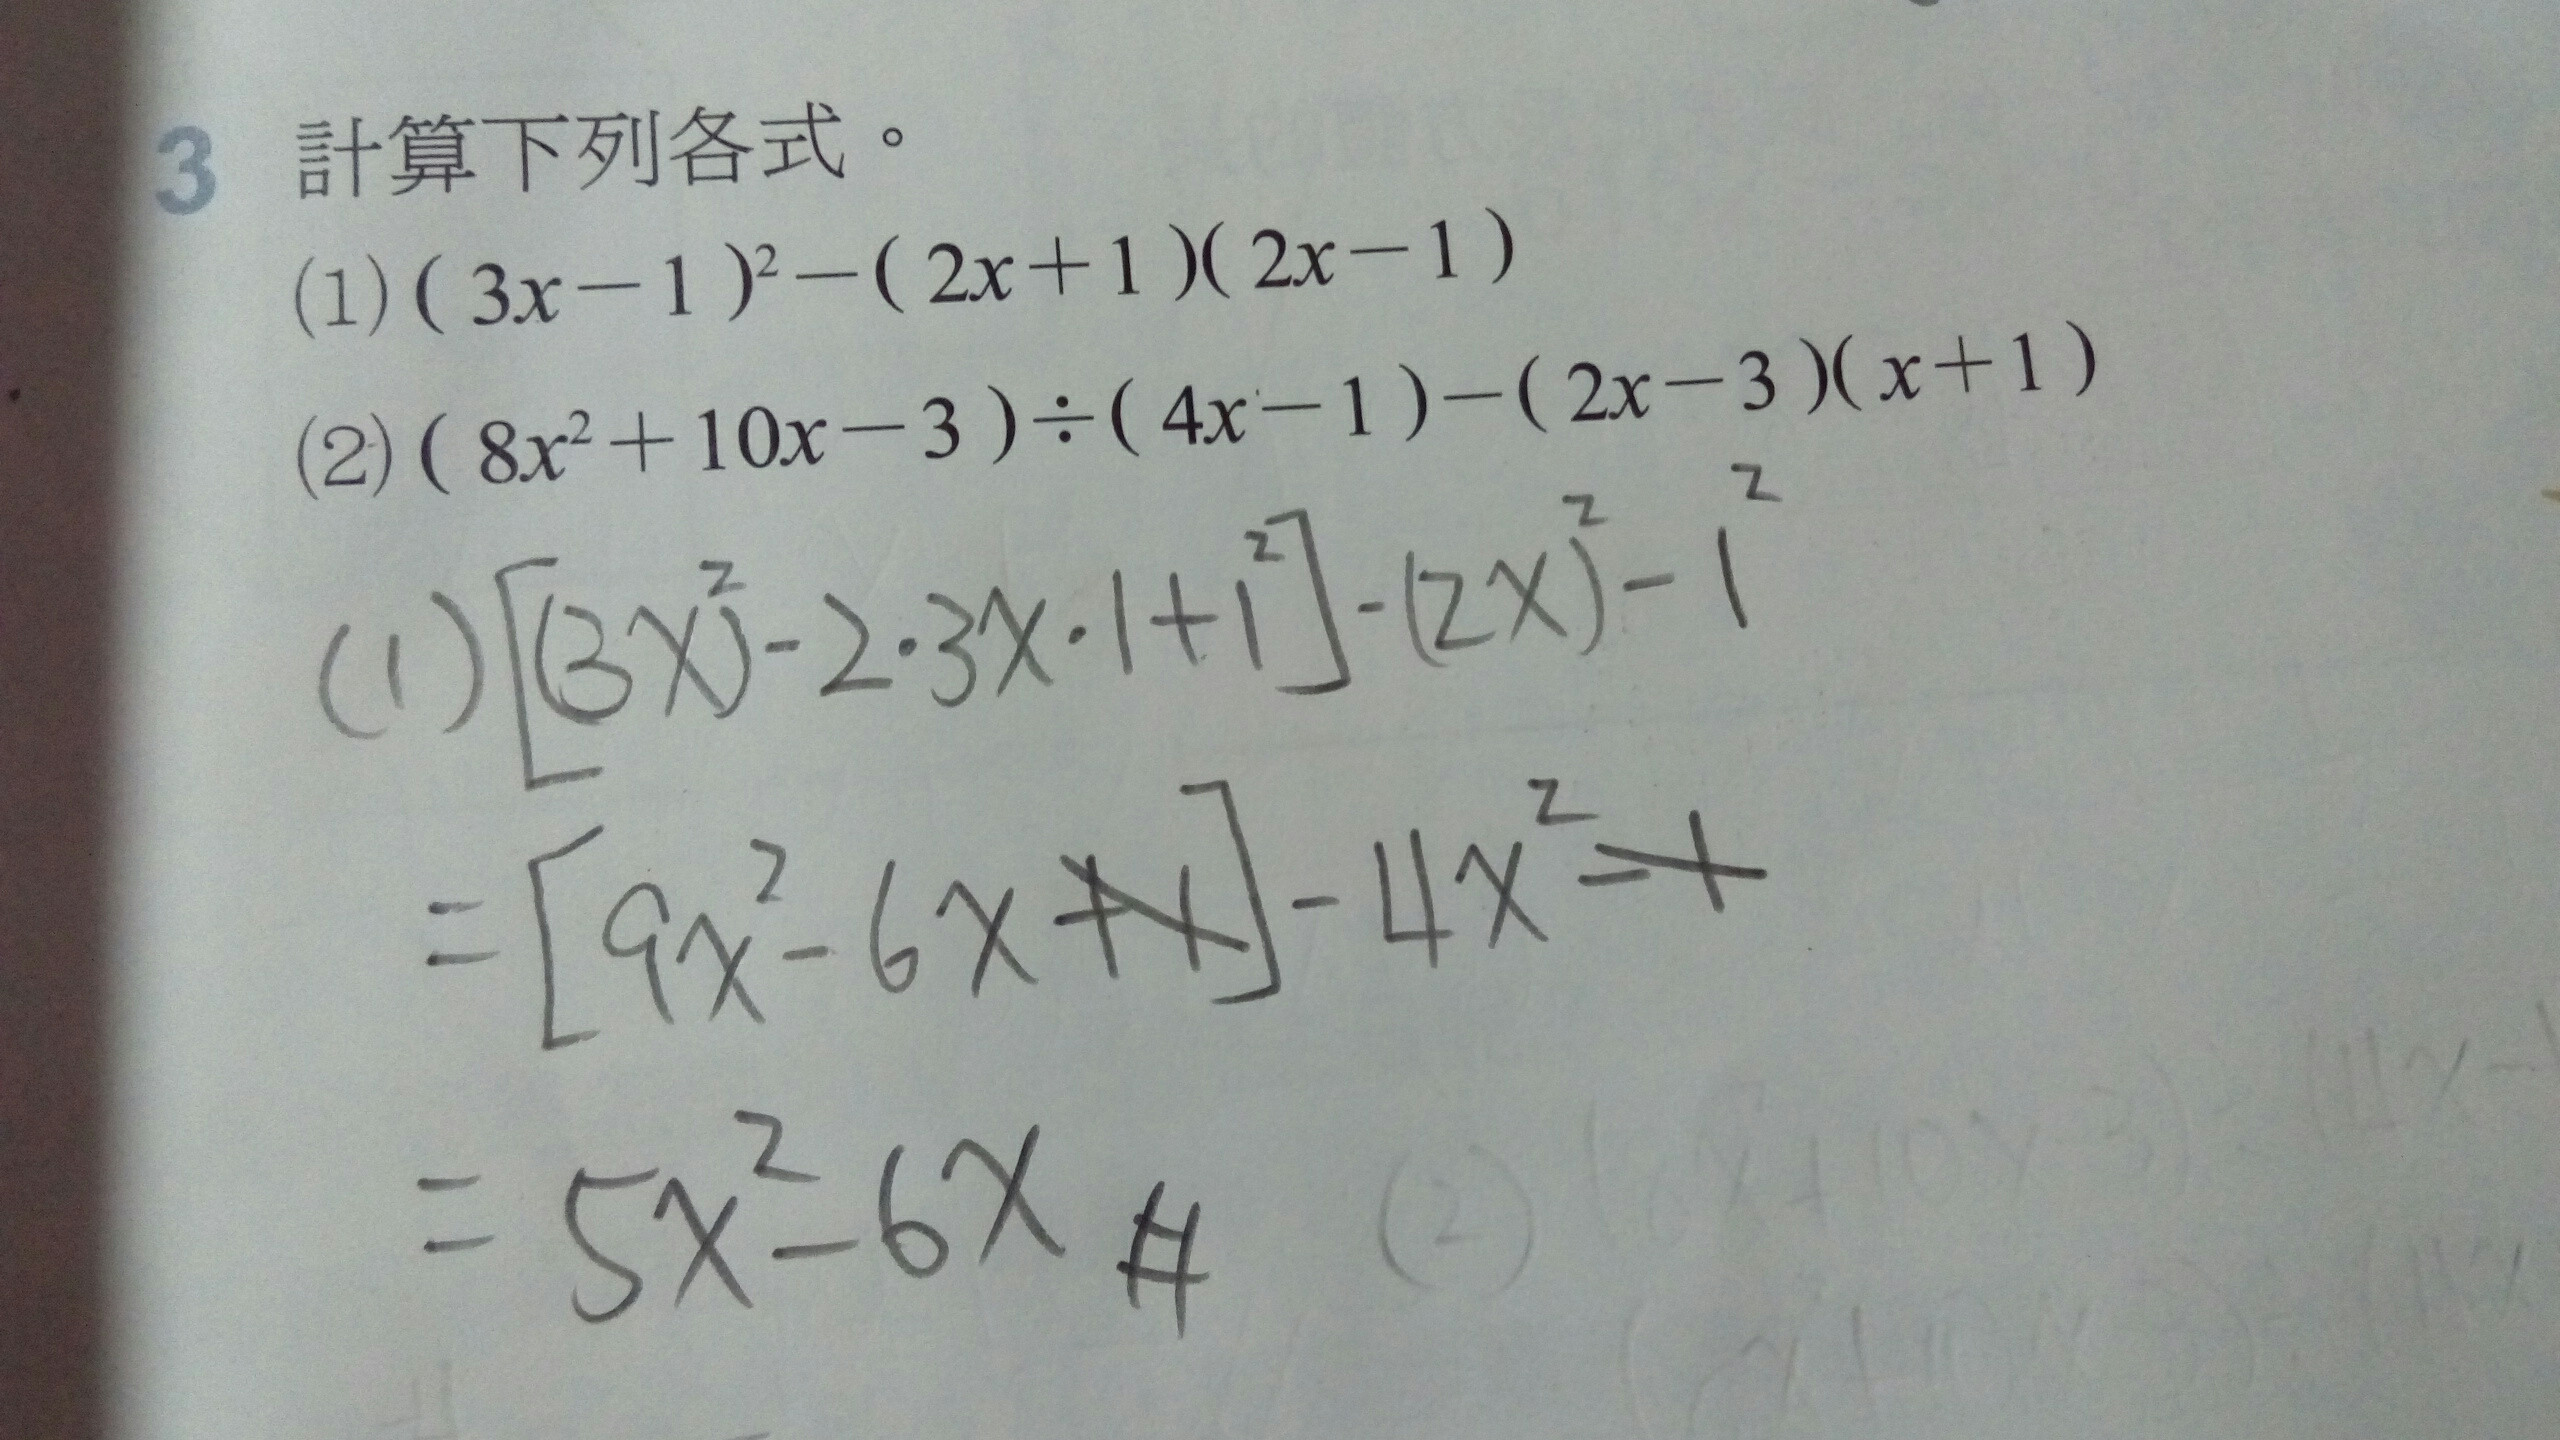 3 計算下列各式。
(1) ( 3x－1 )²－( 2x＋1 )( 2x－1 )
(2) ( 8x²＋10x－3 )÷( 4x－1 )－( 2x－3 )( x＋1 )
(1) [(3x)²-2·3x·1+1²]-(2x)²-1²
= [9x²-6x+1]-4x²-1
= 5x²-6x #